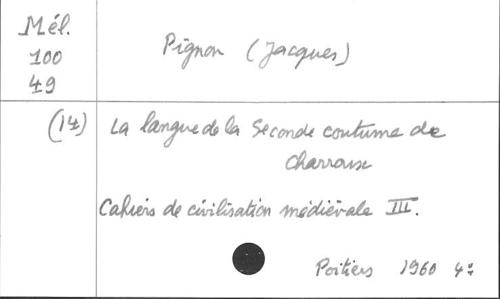 Mél.
100
49
Pignon (Jacques)
(14) La langue de la Seconde coutume de
Charroux
Cahiers de civilisation médiévale III.
Poitiers 1960 4º